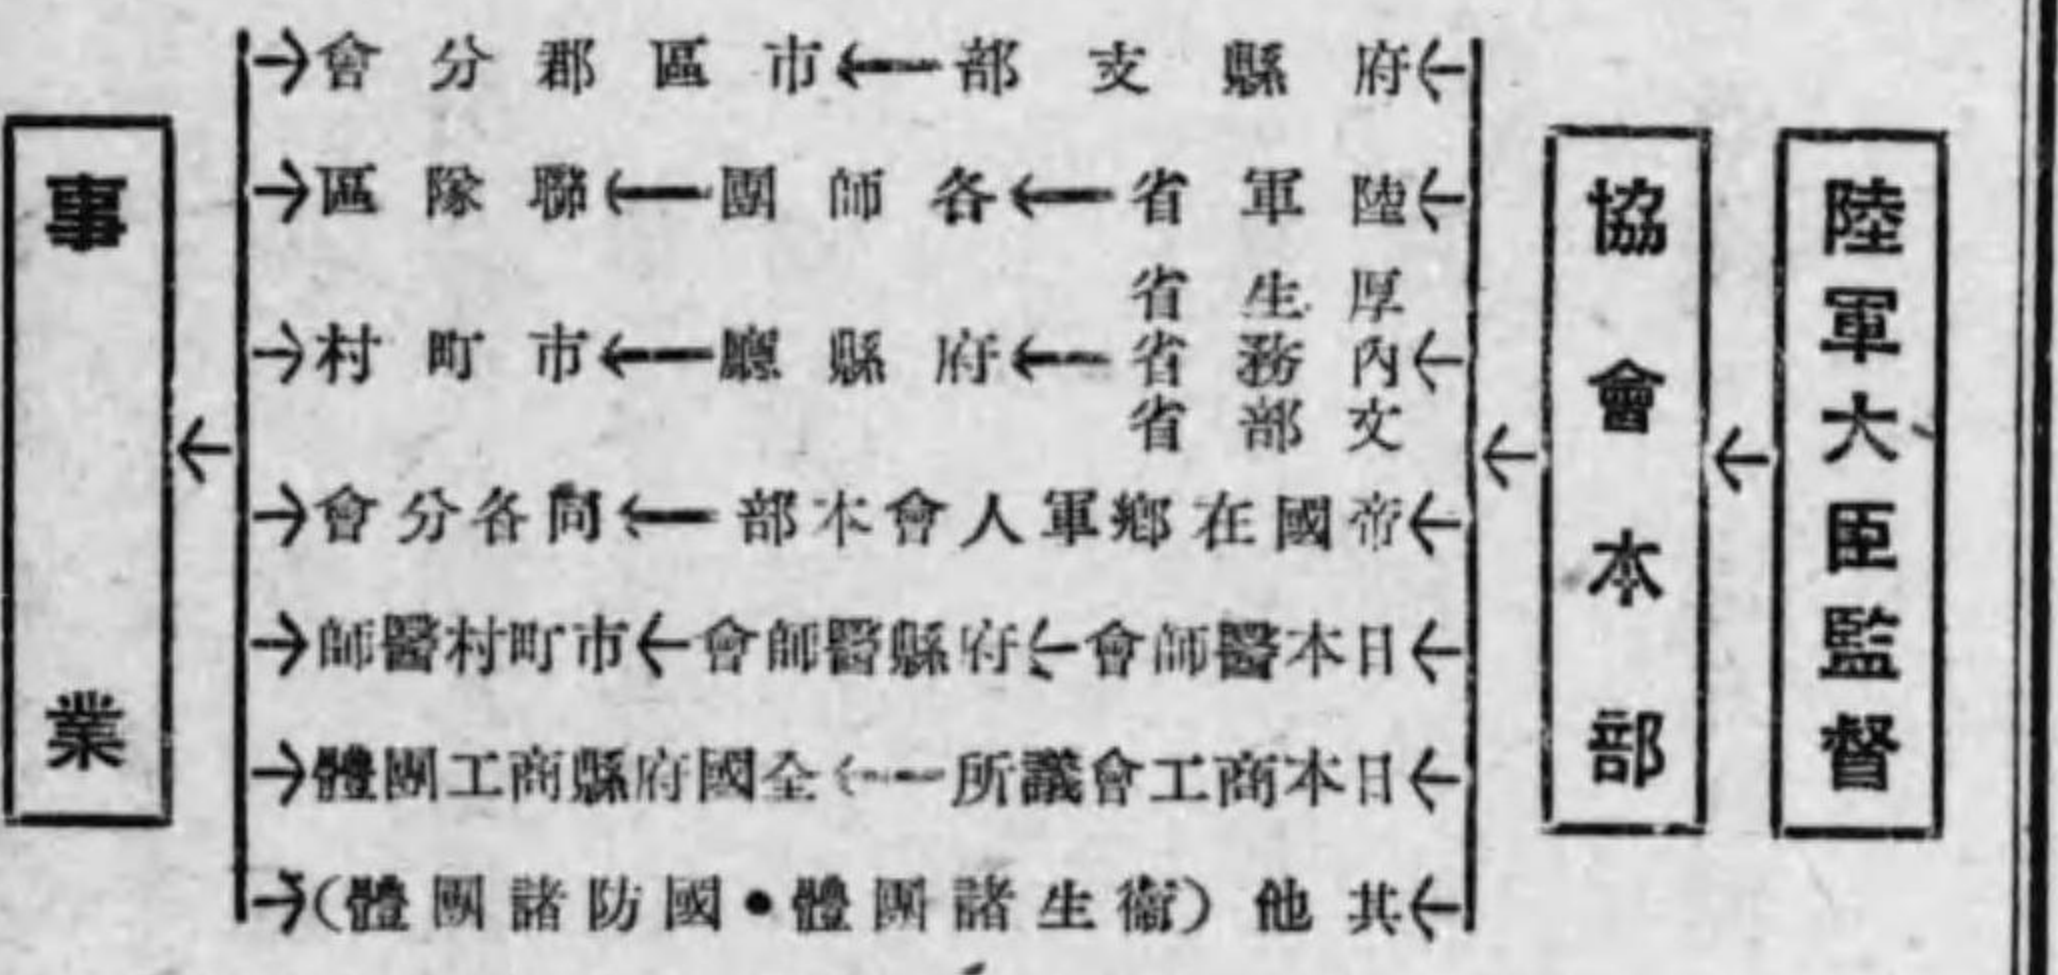 陸軍大臣監督
協會本部
府縣支部←市區郡分會
陸軍省←各師團←聯隊區
厚生省
內務省←府縣廳←市町村
文部省
帝國在鄉軍人會本部←同各分會
日本醫師會←府縣醫師會←市町村醫師
日本商工會議所←全國府縣商工團體
其他（衞生諸團體•國防諸團體）
事業